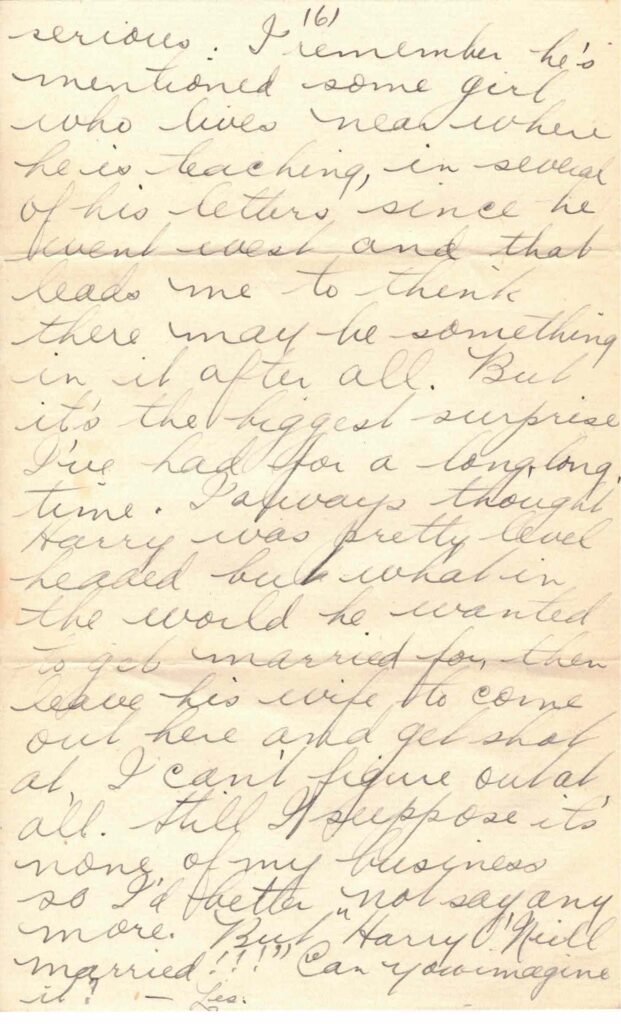 (6)
serious. I remember he's
mentioned some girl
who lives near where
he is teaching, in several
of his letters since he
went west and that
leads me to think
there may be something
in it after all. But
it's the biggest surprise
I've had for a long, long,
time. I always thought
Harry was pretty level
headed but what in
the world he wanted
to get married for, then
leave his wife to come
out here and get shot
at, I can't figure out at
all. Still I suppose it's
none of my business
so I'd better not say any
more. But "Harry Neill
married!!!" Can you imagine
it? — Yes.